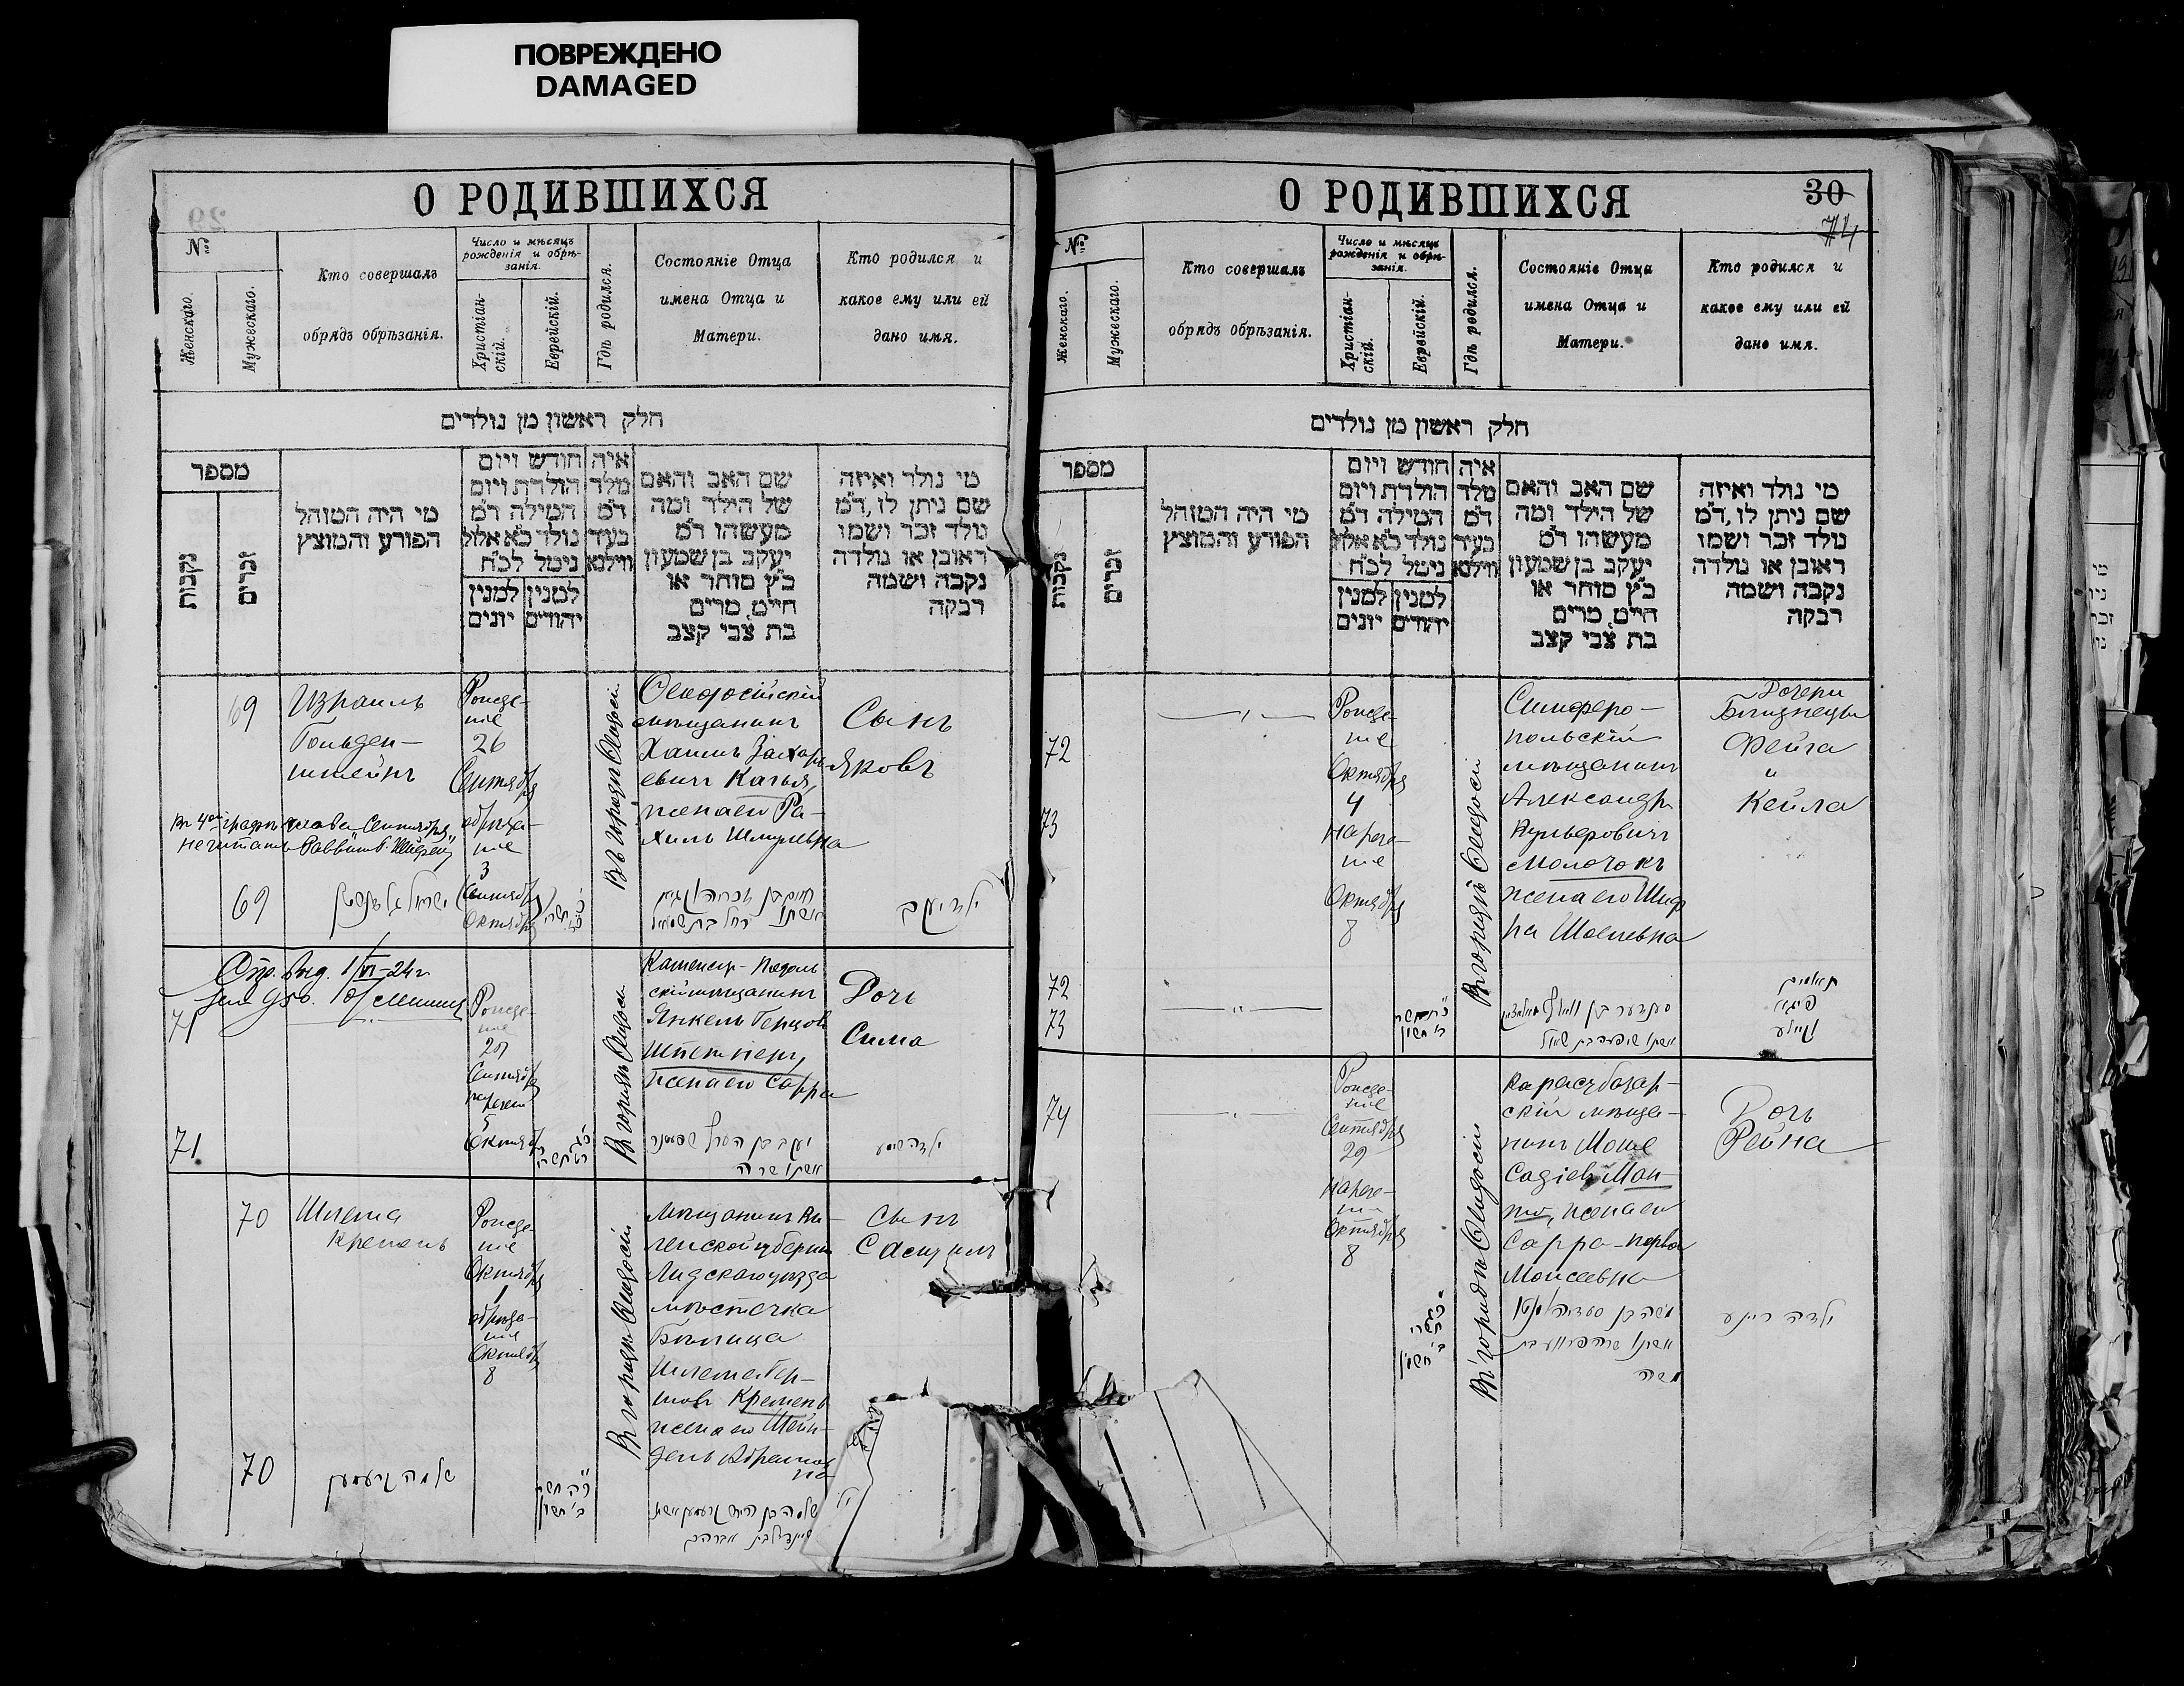 ПОВРЕЖДЕНО
DAMAGED
О РОДИВШИХСЯ
№
Женскаго.
Мужескаго.
Кто совершалъ
обрядъ обрѣзанія.
Число и мѣсяцъ
рожденія и обрѣ-
занія.
Христіан-
скій.
Еврейскій.
Гдѣ родился.
Состояніе Отца
имена Отца и
Матери.
Кто родился и
какое ему или ей
дано имя.
חלק ראשון מן נולדים
מספר
נקבות
זכרים
מי היה המוהל
הפורע והמוצץ
חודש ויום
הולדת ויום
המילה ד״מ
נולד כ״א אלול
נימל לכ״ח
למנין
יונים
למנין
יהודים
איה
מלד
ד״מ
בעיר
ווילנא
שם האב והאם
של הילד ומה
מעשהו ד״מ
יעקב בן שמעון
כ״ץ סוחר או
חייט מרים
בת צבי קצב
מי נולד ואיזה
שם ניתן לו, ד״מ
נולד זכר ושמו
ראובן או נולדה
נקבה ושמה
רבקה
69
Израиль
Гольден-
штейнъ
Рожде-
ніе
26
Сентября
обрѣза-
ніе
3
Октября
Въ городѣ Ѳеодосіи
Ѳеодосійскій
мѣщанинъ
Хаимъ Захарь-
евичъ Качья,
жена его Ра-
хиль Шмулевна
Сынъ
Яковъ
Въ 4ой графѣ слова „Сентября"
не читать Раввинъ
69
71
Рожде-
ніе
29
Сентября
наречен
5
Октября
Въ городѣ Ѳеодосіи
Каменец-Подоль
скій мѣщанинъ
Янкель Герцовъ
жена его Сарра
Дочь
Сима
71
אשתו שרה
70
Шлема
Кремень
Рожде-
ніе
Октября
1
обрѣза-
ніе
Октября
8
Въ городѣ Ѳеодосіи
Мѣщанинъ Ви-
ленской губерніи
Лидскаго уѣзда
мѣстечка
Бѣлица
Шлема Гер-
шовъ Кремень
жена его Шейн-
дель Абрамов
на
Сынъ
Сасиулъ
70
О РОДИВШИХСЯ
30
74
№
Женскаго.
Мужескаго.
Кто совершалъ
обрядъ обрѣзанія.
Число и мѣсяцъ
рожденія и обрѣ-
занія.
Христіан-
скій.
Еврейскій.
Гдѣ родился.
Состояніе Отца
имена Отца и
Матери.
Кто родился и
какое ему или ей
дано имя.
חלק ראשון מן נולדים
מספר
נקבות
זכרים
מי היה המוהל
הפורע והמוצץ
חודש ויום
הולדת ויום
המילה ד״מ
נולד כ״א אלול
נימל לכ״ח
למנין
יונים
למנין
יהודים
איה
מלד
ד״מ
בעיר
ווילנא
שם האב והאם
של הילד ומה
מעשהו ד״מ
יעקב בן שמעון
כ״ץ סוחר או
חייט מרים
בת צבי קצב
מי נולד ואיזה
שם ניתן לו, ד״מ
נולד זכר ושמו
ראובן או נולדה
נקבה ושמה
רבקה
72
73
Рожде-
ніе
Октября
4
Нарече-
ніе
Октября
8
Въ городѣ Ѳеодосіи
Симферо-
польскій
мѣщанинъ
Александръ
Вульфовичъ
Молочокъ
жена его Шиф
ра Шоелевна
Дочери
Близнецы
Фейга
и
Кейла
72
73
תאומים
פיגא
קיילע
74
Рожде-
ніе
Сентября
29
Нарече-
ніе
Октября
8
Въ городѣ Ѳеодосіи
Карасубазар-
скій мѣща-
нинъ Моше
Садіевъ Ман-
то, жена его
Сарра-Перва
Моисеевна
Дочь
Рейна
ילדה ריינע
משה